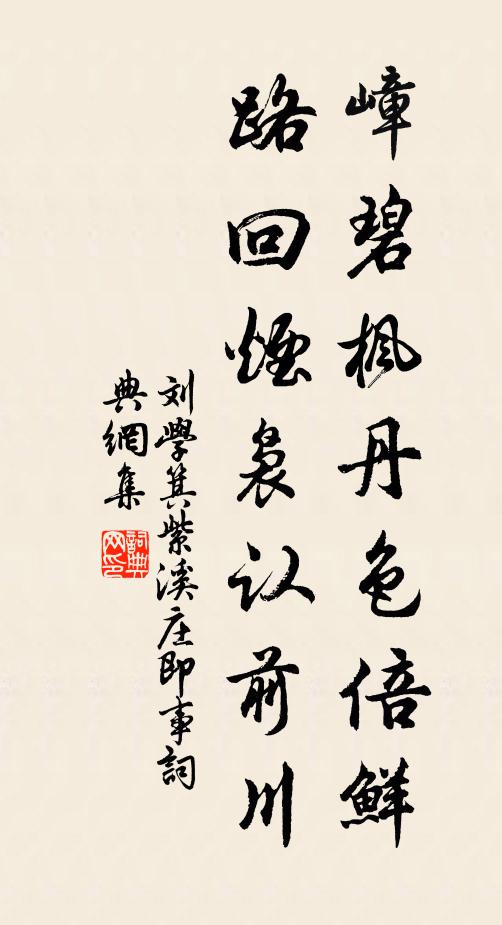 嶂碧楓丹色倍鮮
路回煙裊认前川
刘學箕紫溪庄即事詞
典網集
詞典
网印